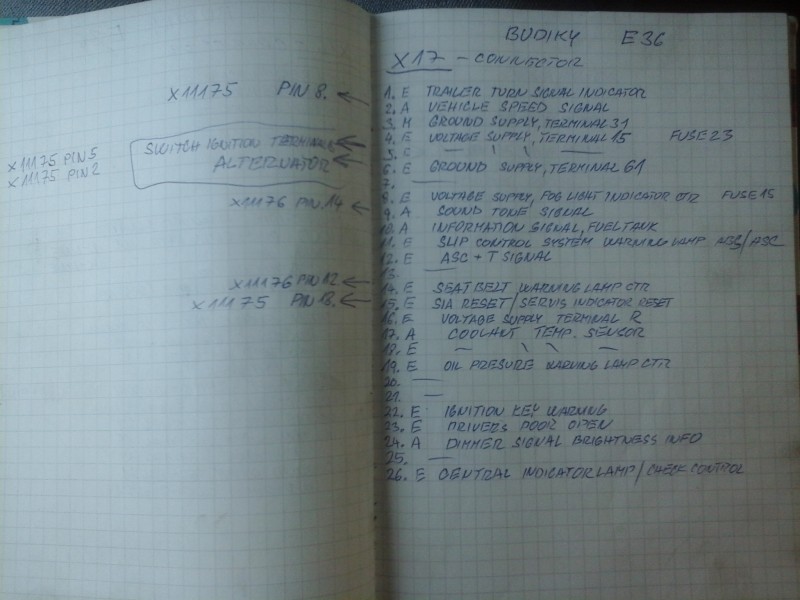 X11175 PIN 8. ←
SWITCH IGNITION TERMINAL ←
ALTERNATOR ←
X11175 PIN 5
X11175 PIN 2
X11176 PIN 14 ←
X11176 PIN 12 ←
X11175 PIN 18. ←
BUDIKY E36
X17 - CONNECTOR
1. E TRAILER TURN SIGNAL INDICATOR
2. A VEHICLE SPEED SIGNAL
3. M GROUND SUPPLY, TERMINAL 31
4. E VOLTAGE SUPPLY, TERMINAL 15 FUSE 23
5. E — \ \ —
6. E GROUND SUPPLY, TERMINAL 61
7. —
8. E VOLTAGE SUPPLY, FOG LIGHT INDICATOR CTR FUSE 15
9. A SOUND TONE SIGNAL
10. A INFORMATION SIGNAL, FUEL TANK
11. E SLIP CONTROL SYSTEM WARNING LAMP ABS/ASC
12. E ASC + T SIGNAL
13. —
14. E SEAT BELT WARNING LAMP CTR
15. E SIA RESET/SERVIS INDICATOR RESET
16. E VOLTAGE SUPPLY TERMINAL R
17. A COOLANT TEMP. SENSOR
18. E — \ \ —
19. E OIL PRESURE WARNING LAMP CTR
20. —
21. —
22. E IGNITION KEY WARNING
23. E DRIVERS DOOR OPEN
24. A DIMMER SIGNAL BRIGHTNESS INFO
25. —
26. E CENTRAL INDICATOR LAMP/CHECK CONTROL